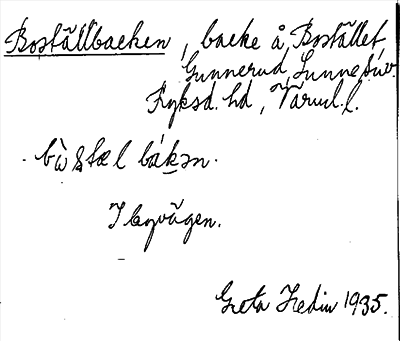 Boställbacken, backe å Bostället
Gunnerud, Sunne sn.
Fryksd. hd, Värml. l.
bùstæl bákən.
I byvägen.
Greta Hedin 1935.